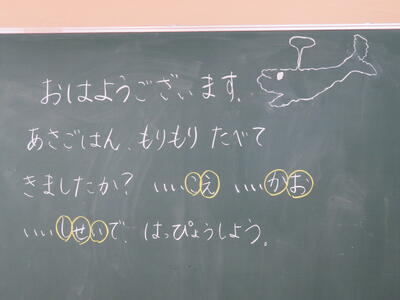 おはようございます。
あさごはん、もりもり たべて
きましたか? いいこえ いいかお
いいしせいで、はっぴょうしよう。